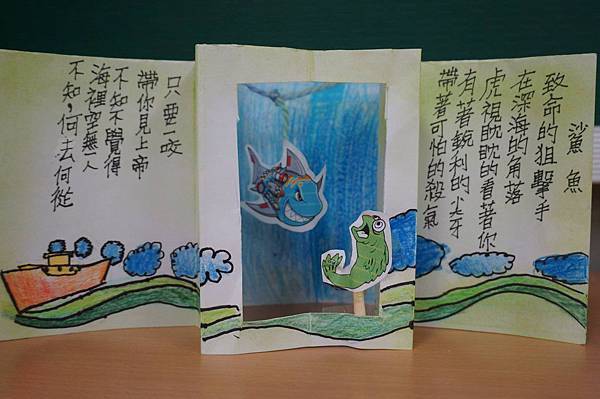 鯊魚
致命的狙擊手
在深海的角落
虎視眈眈的看著你
有著銳利的尖牙
帶著可怕的殺氣
只要一咬
帶你見上帝
不知不覺得
海裡空無一人
不知,何去何從